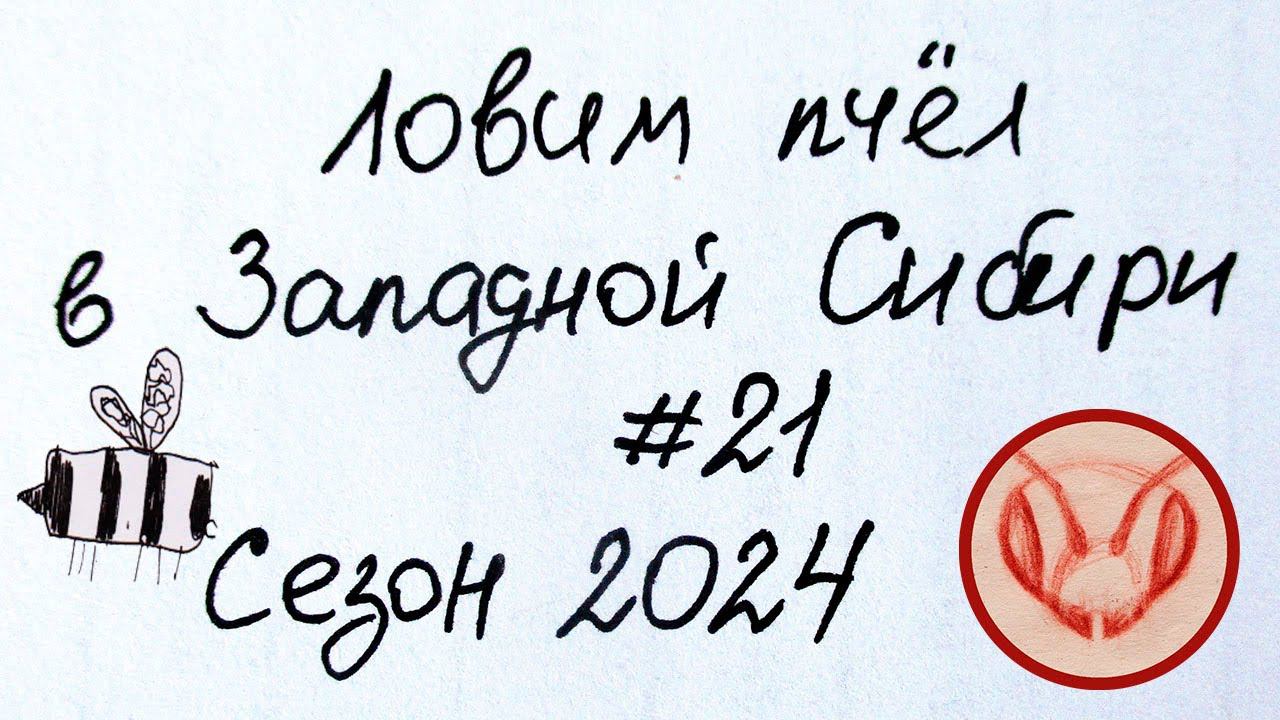 Ловим пчёл
в Западной Сибири
#21
Сезон 2024